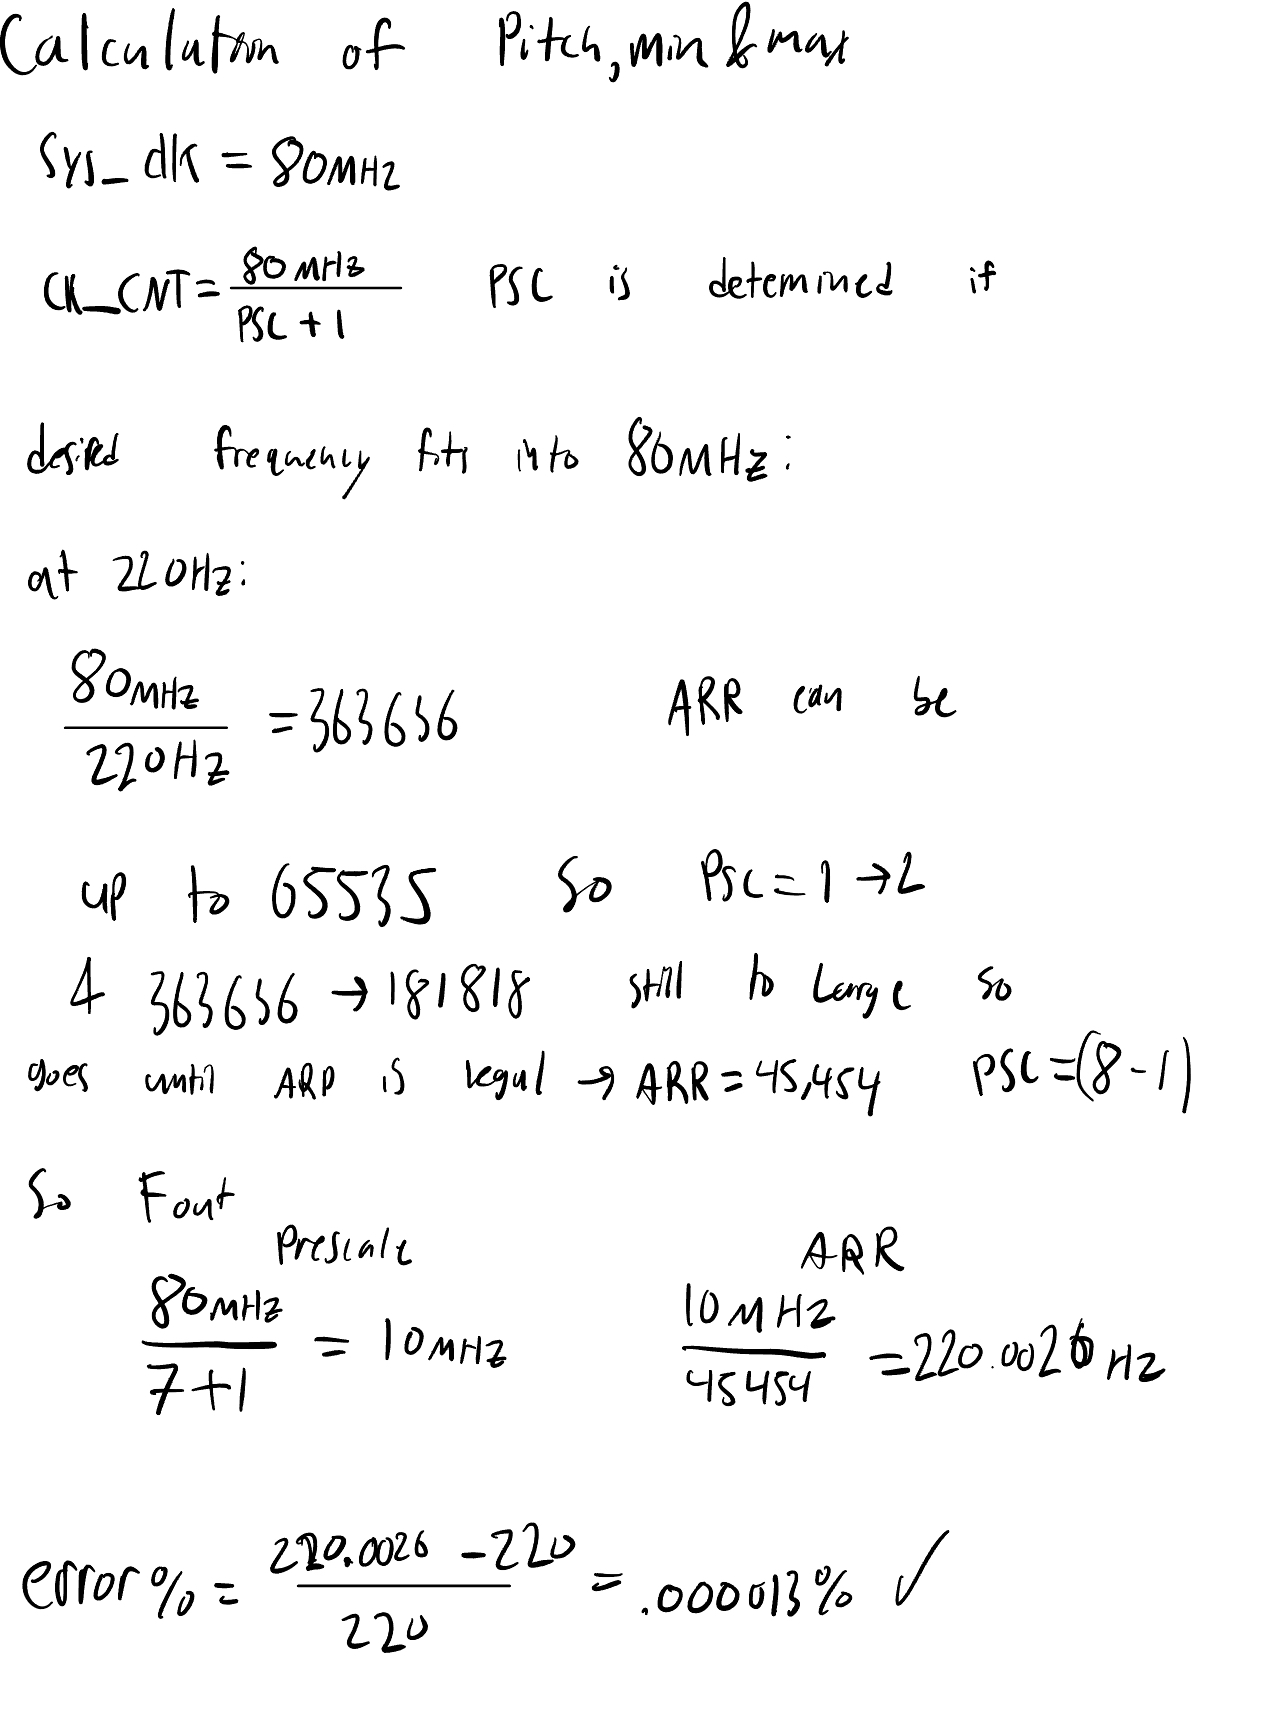 Calculation of Pitch, min & max
Sys_clk = 80MHz
CK_CNT = 80MHz / PSC + 1 PSC is determined if
desired frequency fits into 80MHz:
at 220Hz:
80MHz / 220Hz = 363636 ARR can be
up to 65535 so PSC = 1 → 2
& 363636 → 181818 still to large so
goes until ARR is legal → ARR = 45,454 PSC = (8-1)
So Fout
Prescale ARR
80MHz / 7+1 = 10MHz 10MHz / 45454 = 220.0026 Hz
error% = 220.0026 - 220 / 220 = .000013% ✓